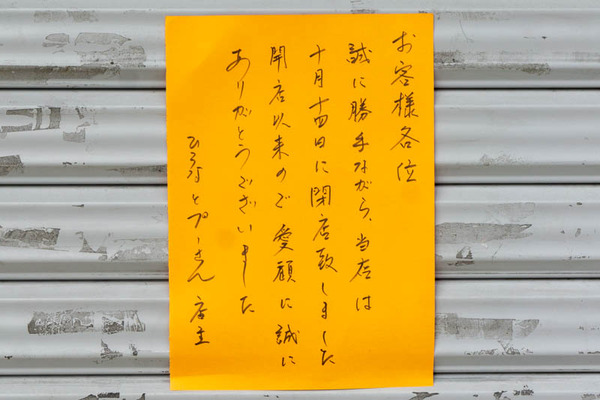 お客様各位
誠に勝手ながら、当店は
十月十四日に閉店致しました
開店以来のご愛顧に誠に
ありがとうございました
ひろなとプーさん 店主